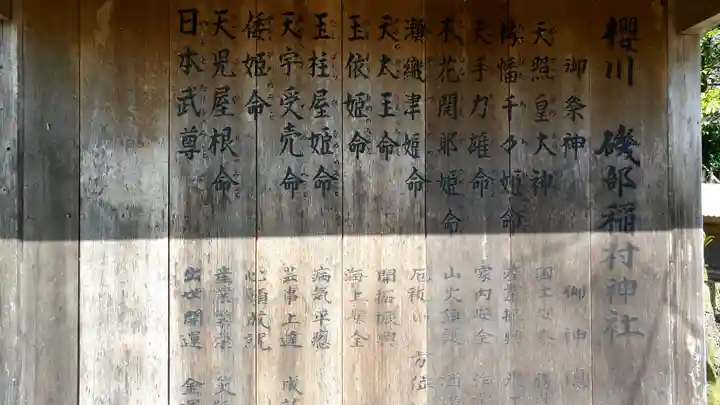 櫻川 磯部稲村神社
御祭神 御神徳
天照皇大神 国土安泰
栲幡千々姫命
天手力雄命 家内安全
木花開耶姫命 山火鎮護
瀬織津姫命 厄祓い 方位
天太玉命 開拓振興
玉依姫命 海上安全
玉柱屋姫命 病気平癒
天宇受売命 芸事上達
倭姫命 心願成就
天児屋根命 産業繁栄
日本武尊 出世開運